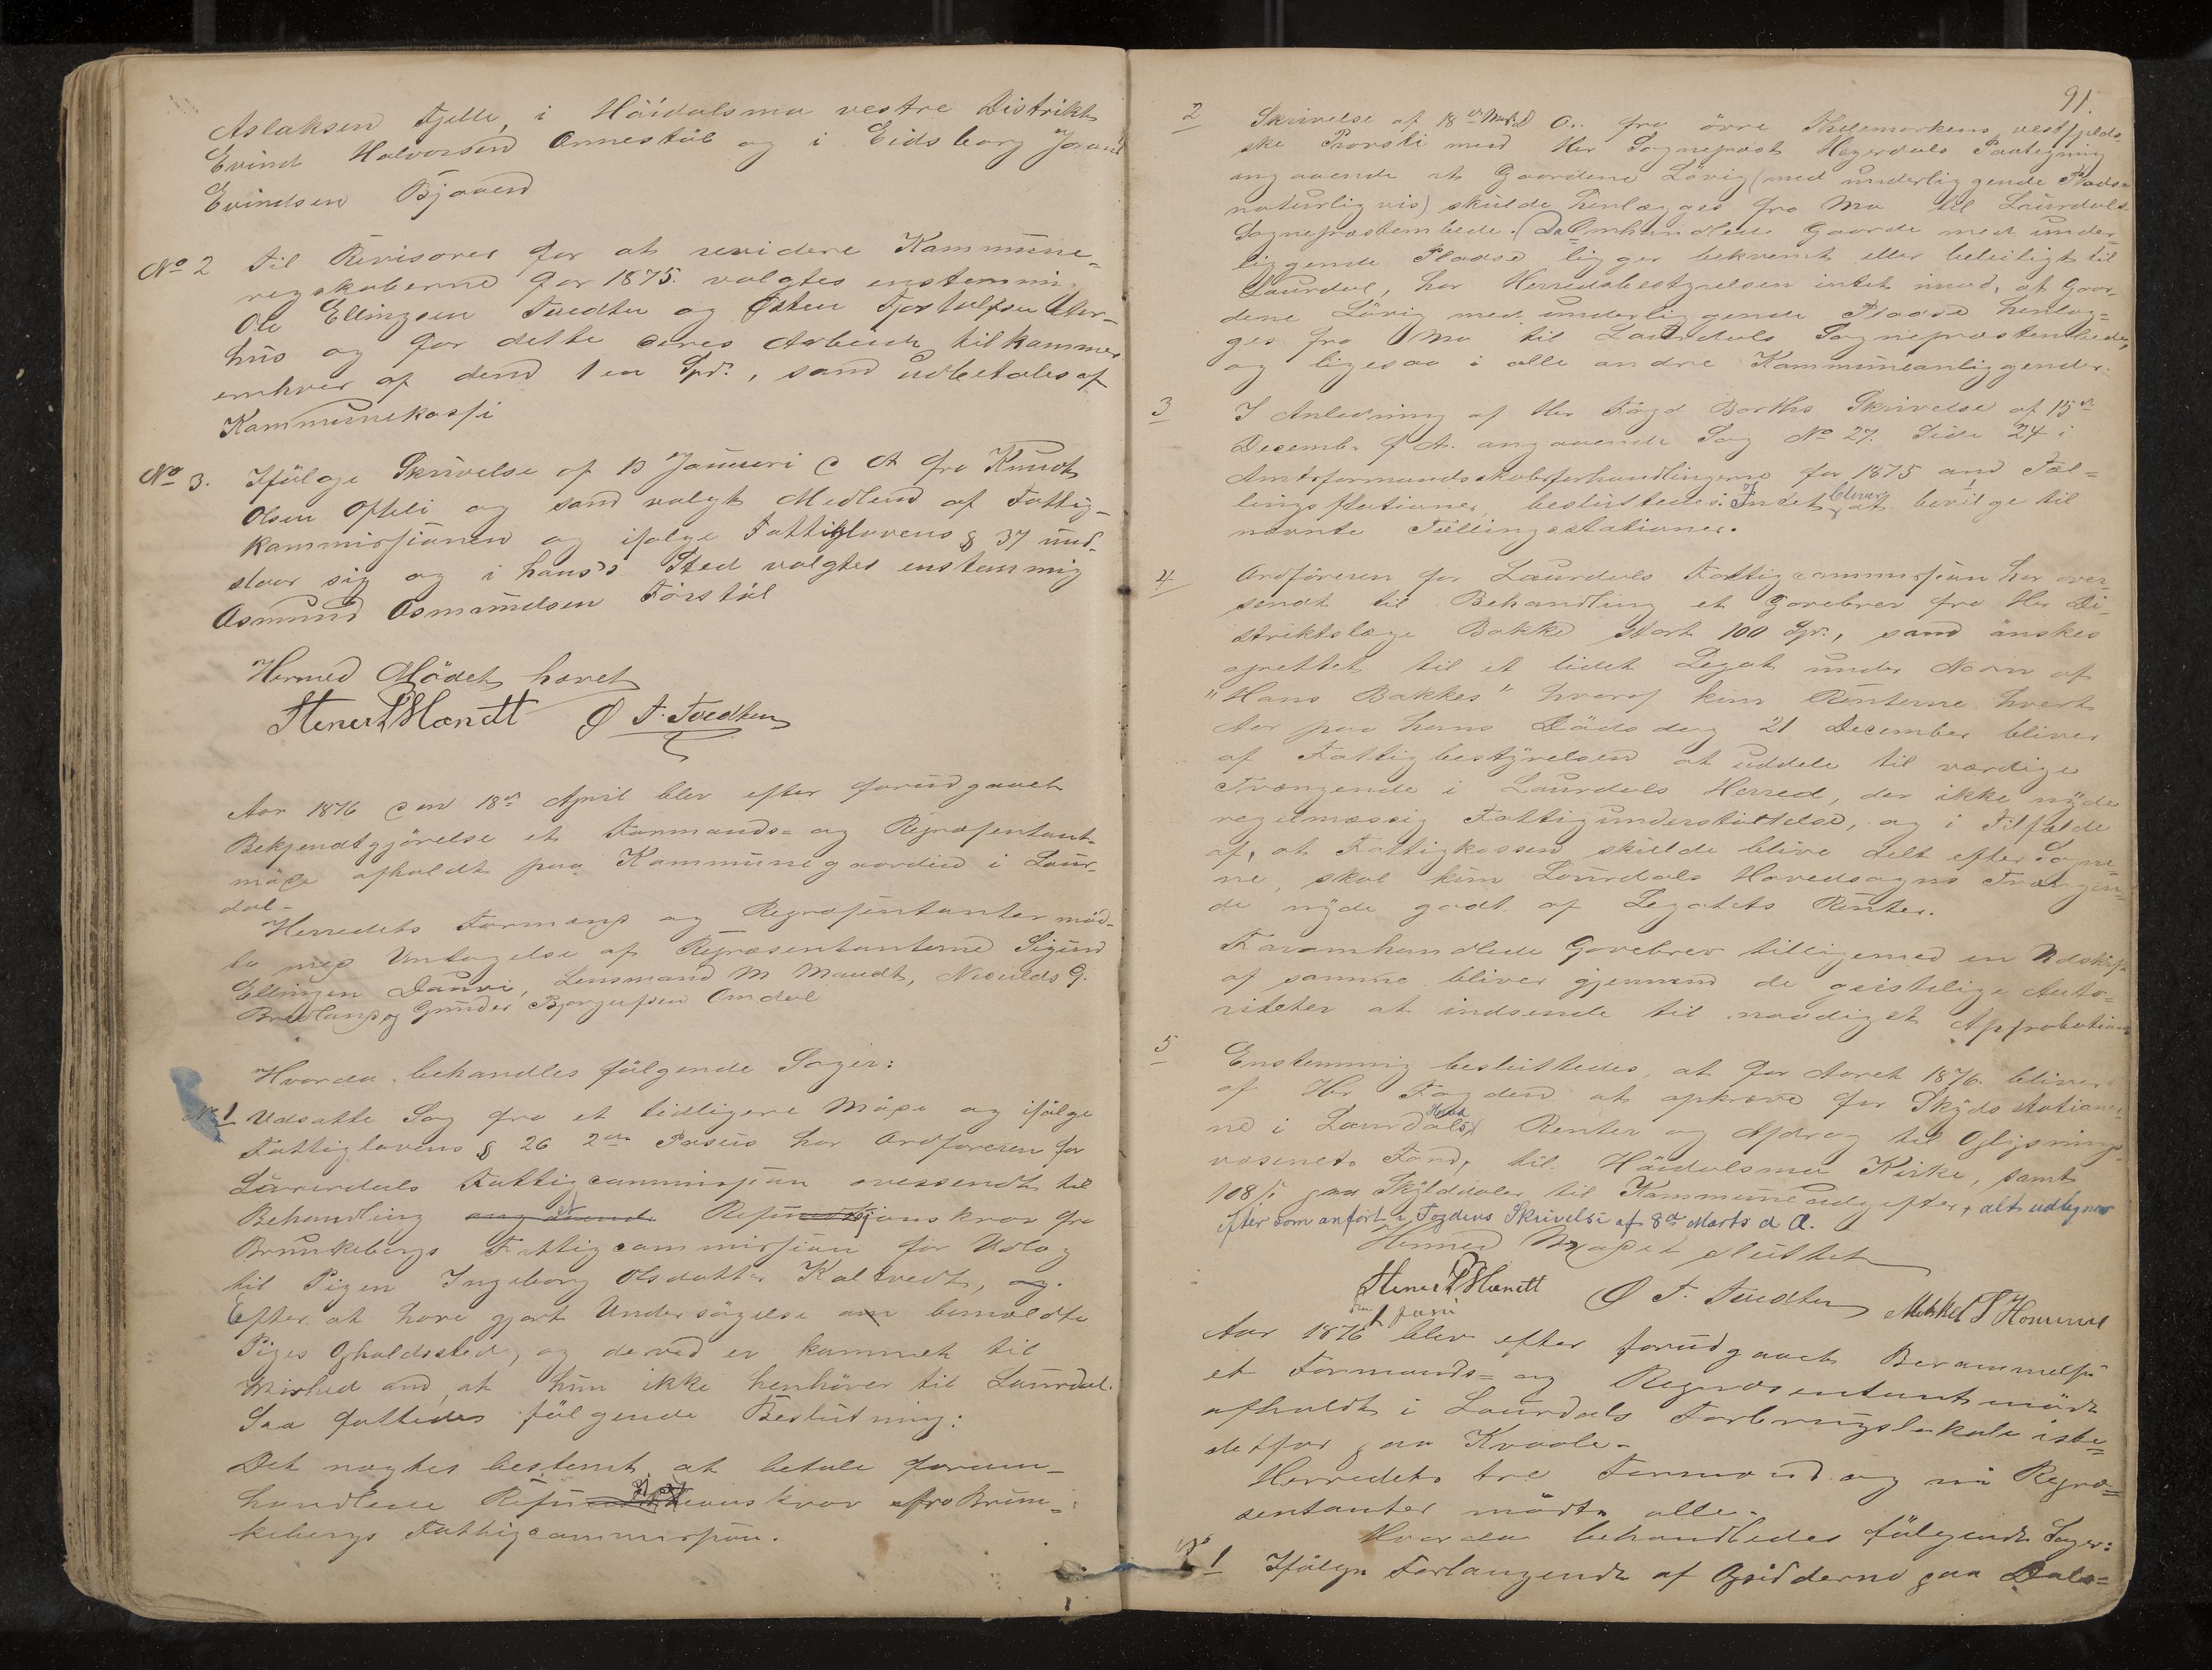 Aslaksen Fjelle, i Höidalsmo vestre Distrikt
Evind Halvorsen Ønnestöl og i Eidsborg Jorund
Evindsen Bjaaen
No 2 Til Revisorer for at revidere Kommune=
regskaberne for 1875 valgtes enstemmi.
Ole Ellingsen Tvedten og Østen Tjostulfsen
hus og for dette deres Arbeide tilkommer
enhver af dem 1 en Spd., som udbetales af
Kommunekassi
No 3. Ifölge Skrivelse af 13 Januari d A fra Knudt
Olsen Ofteli og som valgt Medlem af Fattig-
kommissionen og ifölge Fattiglovens § 37 und-
slaar sig og i hans's Sted valgtes enstemmig
Asmund Osmundsen Förstöl
Hermed Mödet hævet
Stener Mandt Ø T. Tvedten
Aar 1876 den 18de April blev efter forudgaaet
Bekjendtgjörelse et Formands= og Repræsentant-
möde afholdt paa Kommunegaarden i Laur-
dal-
Herredets Formænd og Repræsentanter möd-
te med Undtagelse af Repræsentanterne Sigurd
Ellingsen Daavi, Lensmand M Mandt, Neri G.
Bredland og Gunder Bjørgufsen Omdal
Hvorda behandles fölgende Sager:
No 1 Udsatte Sag fra et tidligere Möde og ifölge
Fattiglovens § 26 2den Passus har Ordföreren for
Laurdals Fattigcommission oversendt til
Behandling angaaende et Refusionskrav fra
Brunkebergs Fattigcommission for Udlæg
til Pigen Ingeborg Olsdatter Kaltvedt, og.
Efter at have gjort Undersögelse om bemældte
Piges Opholdssted, og derved er kommet til
Vished om at hun ikke henhörer til Laurdal.
Saa fattedes fölgende Beslutning:
Det nægtes bestemt at betale forom-
handlede Refusionskrav fra Brun-
kebergs Fattigcommission.
91.
2 Skrivelse af 18de Marts d A. fra övre Thelemarkens vestfjelds-
ske Provsti med Her Sognepræst Hægerdals Paategning
angaaende at Gaardene Lövig (med underliggende Pladse
naturligvis) skulde henlægges fra Mo til Laurdals
Sognepræstembede. Da Omhandlede Gaarde med under-
liggende Pladse ligger bekvemt eller beleiligt til
Laurdal, har Herredsbestyrelsen intet imod, at Gaar-
dene Lövig med underliggende Pladse henlæg=
ges fra Mo til Laurdals Sognepræstembede,
og ligesaa i alle andre Kommuneanliggender.
3 I Anledning af Her Fogd Barths Skrivelse af 15de
December f A. angaaende Sag No 27. Side 24 i
Amtsformandskabsforhandlingerne for 1875 om Tæl=
lingsstationer, besluttedes: Intet bliver at bevilge til
nævnte Tællingsstationer.
4 Ordföreren for Laurdals Fattigcommission har over-
sendt til Behandling et Gavebrev fra Her Di-
striktslæge Bakke stort 100 Spd., som önskes
oprettet til et lidet Legat under Navn af
"Hans Bakkes" hvoraf kun Renterne hvert
Aar paa hans Dödsdag 21 December bliver
af Fattigbestyrelsen at uddele til værdige
Trængende i Laurdals Herred, der ikke nyder
regelmæssig Fattigunderstöttelse, og i Tilfælde
af, at Fattigkassen skulde blive delt efter Sogne-
ne, skal kun Laurdals Hovedsogns Trængen-
de nyde godt af Legatets Renter.
Foromhandlede Gavebrev tilligemed en Udskrift
af samme bliver gjennem de geistelige Auto=
riteter at indsende til naadigst Approbation
5 Enstemmig besluttedes, at for Aaret 1876 bliver
af Her Fogden at opkræve for Skydsstationer-
ne i Laurdals Renter og Afdrag til Oplysnings-
væsenets Fond, til Höidalsmo Kirke, samt
108 s. paa Skylddaler til Kommuneudgifter, alt udlignes
efter som anfört i Fogdens Skrivelse af 8de Marts d A.
Hermed Mödet sluttet
Stener Mandt Ø T. Tvedten Mikkel S Homme
den 1 Juni
Aar 1876 blev efter forudgaaet Berammelse
et Formands= og Repræsentantmöde
afholdt i Laurdals Forbrugslokale iste=
detfor paa Kvaale-
Herredets tre Formænd og ni Repræ=
sentanter mödte alle.
Hvorda behandledes fölgende Sager:
No 1 Ifölge Forlangende af Opsidderne paa Dals=